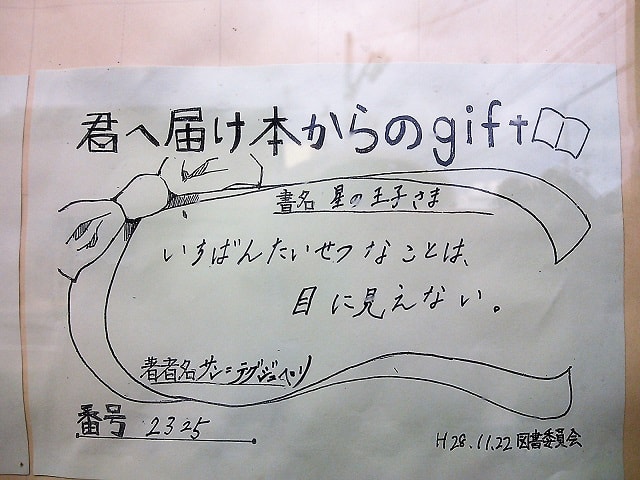 君へ届け本からのgift
書名 星の王子さま
いちばんたいせつなことは、
目に見えない。
著者名 サン=テグジュペリ
番号 2325
H28.11.22 図書委員会